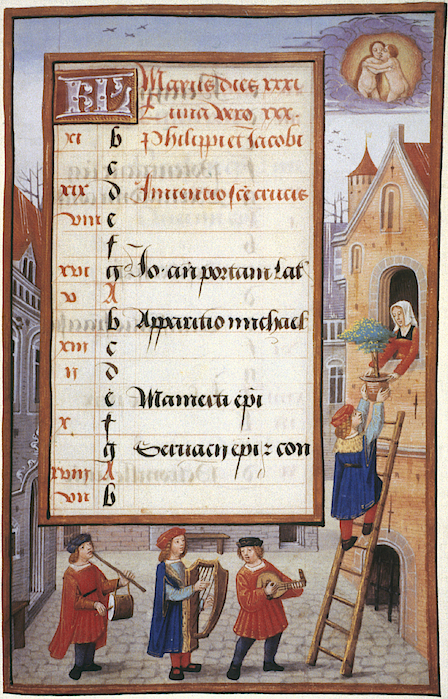 KL Maius dies xxxi
Luna vero xxx.
xi b Philippi et Jacobi
c
xix d Inventio scē crucis
viii e
f
xvi g Jo. an̄ portam lat
v A
b Apparitio michael
xiii c
ii d
e Mamerti epi
x f
g Servacii epi z con
xviii A
vii b